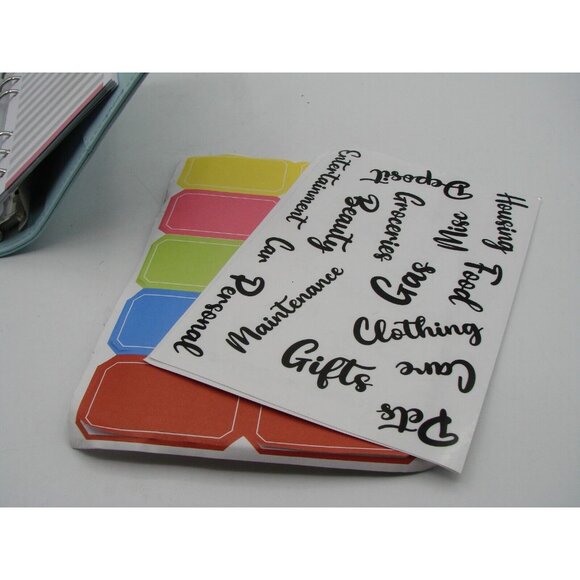 Entertainment
Deposit
Housing
Beauty
Groceries
Misc
Car
Gas
Food
Personal
Maintenance
Clothing
Gifts
Care
Pets